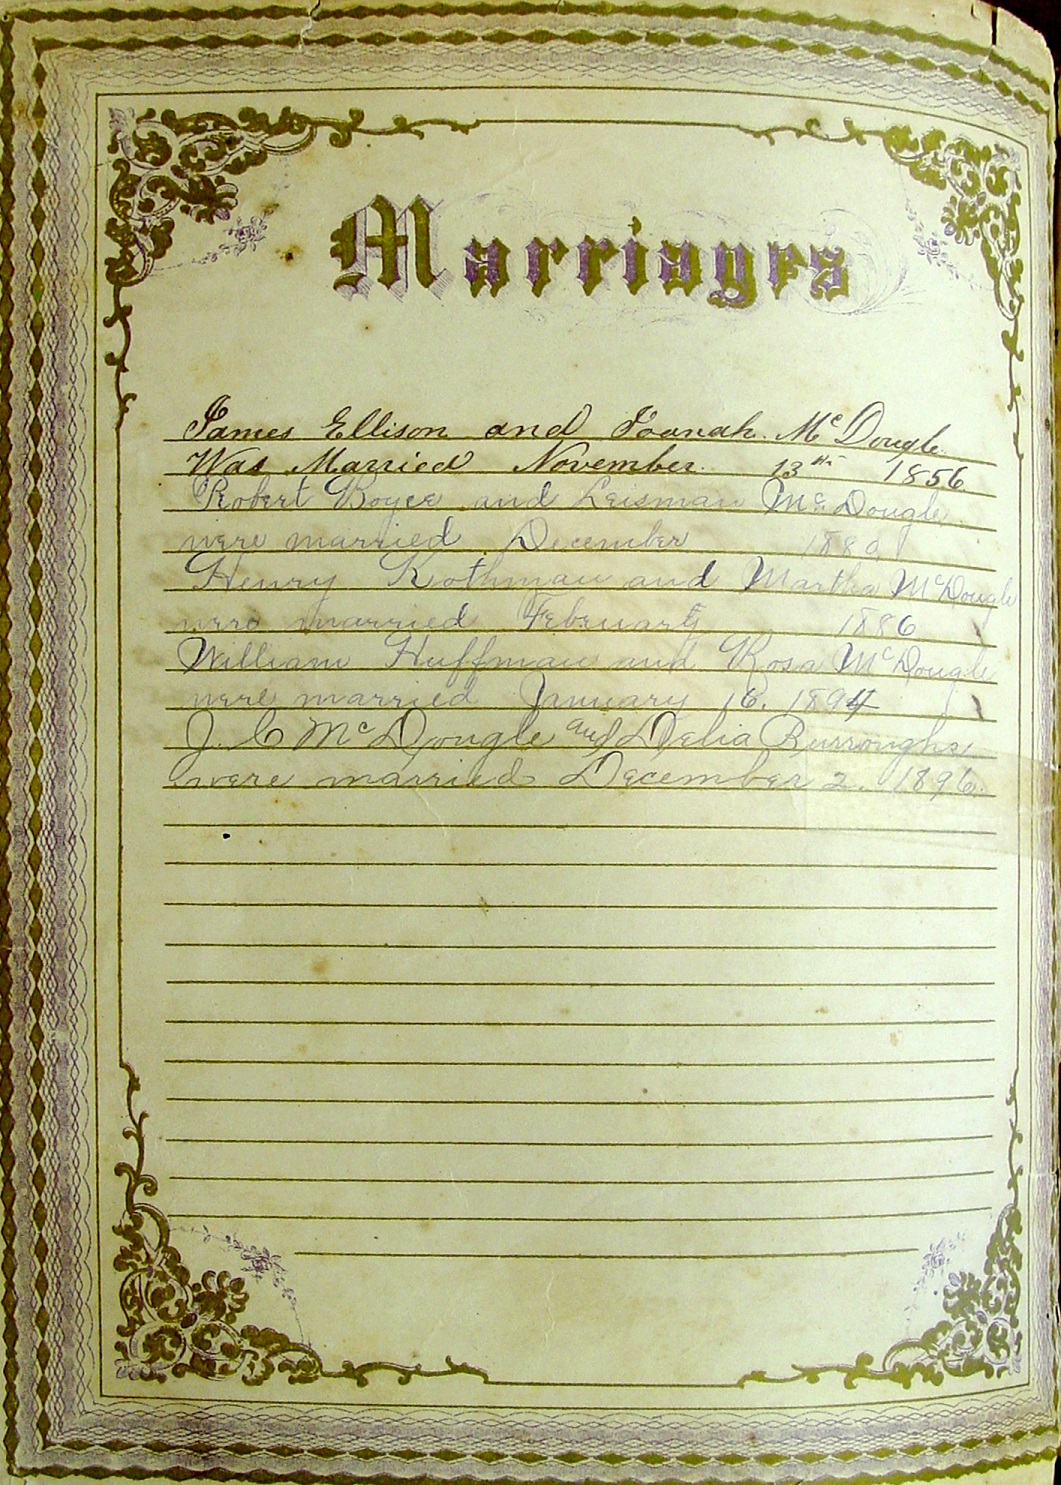 Marriages
James Ellison and Joanah. McDougle.
Was Married November. 13th 1856
Robert Boyce and Leisman McDougle
were married December 1880
Henry Kothman and Martha McDougle
were married February 1886
William Huffman and Rosa McDougle
were married January 16. 1894
J. C McDougle and Delia Burroughs
were married December 2. 1896.